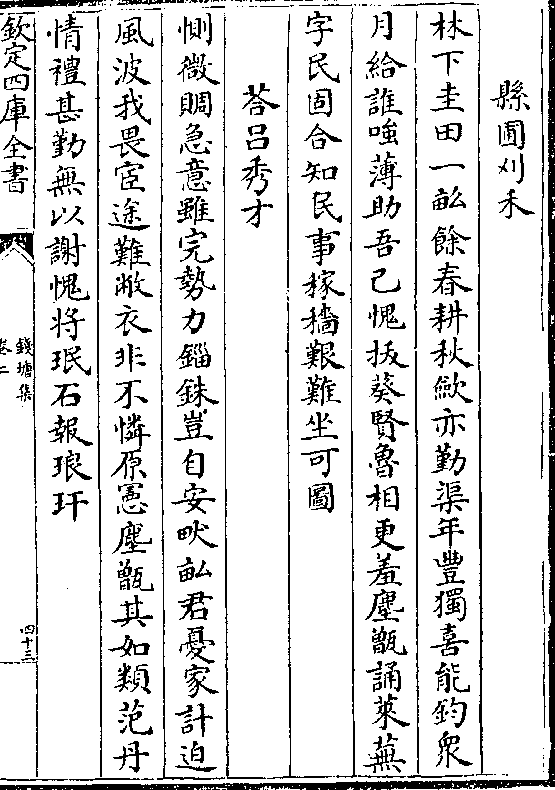 縣圃刈禾
林下圭田一畝餘春耕秋歛亦勤渠年豐獨喜能鈞衆
月給誰嗤薄助吾己愧拔葵賢魯相更羞塵甑誦萊蕪
字民固合知民事稼穡艱難坐可圖
荅吕秀才
惻微賙急意雖完勢力錙銖豈自安畎畝君憂家計迫
風波我畏宦途難敝衣非不憐原憲塵甑其如類范丹
情禮甚勤無以謝愧将珉石報琅玕
欽定四庫全書
錢塘集
卷二
四十三